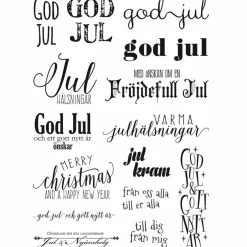 GOD
JUL
GOD
JUL
god jul
god jul
Jul
HÄLSNINGAR
MED ÖNSKAN OM EN
Fröjdefull Jul
God Jul
och ett gott nytt år
önskar
VARMA
julhälsningar
MERRY
christmas
AND A HAPPY NEW YEAR
jul
kram
GOD
JUL
&
GOTT
NYTT
ÅR
god jul och gott nytt år
från oss alla
till er alla
ÖNSKAR ER EN UNDERBAR
Jul & Nyårshelg
till dig
från mig